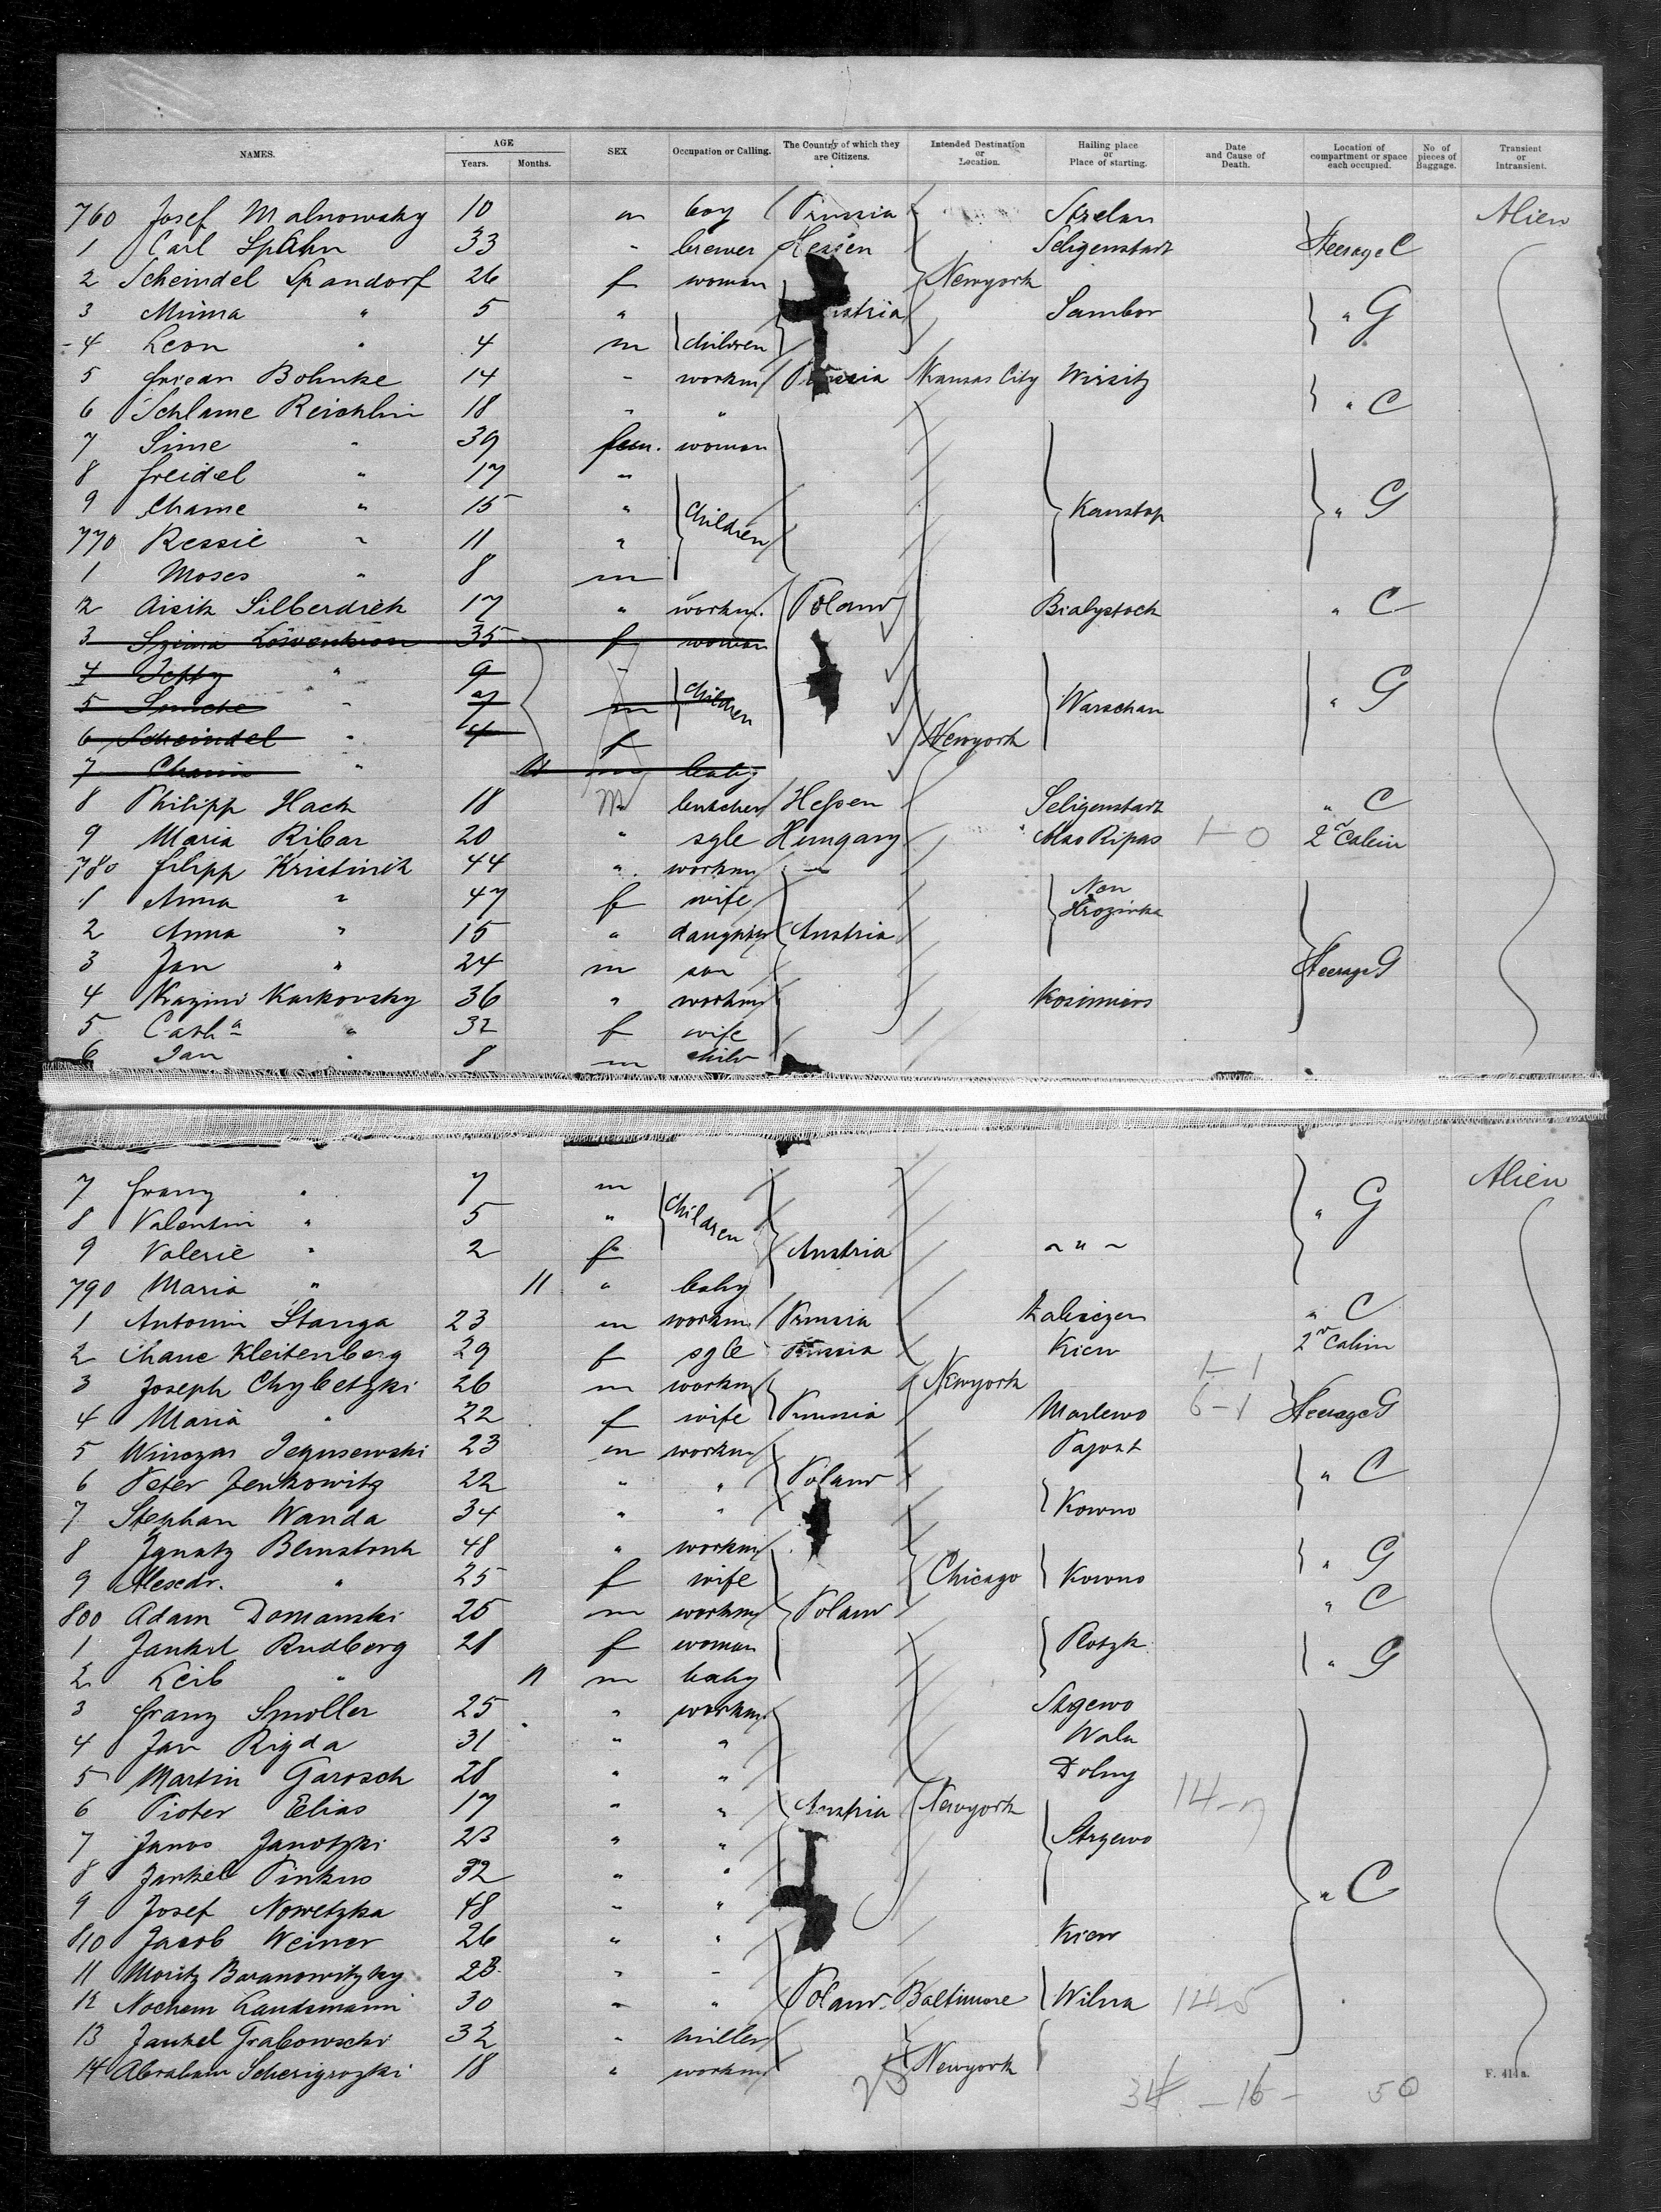 NAMES. AGE Years. Months. SEX Occupation or Calling. The Country of which they are Citizens. Intended Destination or Location. Hailing place or Place of starting. Date and Cause of Death. Location of compartment or space each occupied. No of pieces of Baggage. Transient or Intransient.
760 Josef Malnowsky 10 m boy Prussia Strelau Alien
1 Carl Spahn 33 " brewer Hessen Seligenstadt Steerage C
2 Scheindel Spandorf 26 f woman Newyork
3 Minna " 5 " Austria Sambor " G
4 Leon " 4 m children
5 Friedr Bohnke 14 " workm Prussia Kansas City Wirsitz
6 Schlame Reichlin 18 " " " C
7 Sime " 39 fem. woman
8 Freidel " 17 "
9 Chame " 15 " children Konstop " G
770 Ressie " 11 "
1 Moses " 8 m
2 Aisik Silberdiek 17 " workm. Poland Bialystock " C
3 35 f woman
4 " 9 "
5 " 7 m children Warschau " G
6 Scheindel " 4 f Newyork
7 " 11 m baby
8 Philipp Hack 18 m butcher Hessen Seligenstadt " C
9 Maria Ribar 20 " sgle Hungary Also Ripas 1-0 2nd Cabin
780 Filipp Kristinik 44 " workm "
1 Anna " 47 f wife Neu Hrozinka
2 Anna " 15 " daughter Austria
3 Jan " 24 m son Steerage G
4 Kazimi Karkovsky 36 " workm Kosimiers
5 " 32 f wife
6 Jan " 8 m child
7 Franz " 7 m Alien
8 Valentin " 5 " children " G
9 Valerie " 2 f Austria - " -
790 Maria " 11 " baby
1 Antonin Stanga 23 m workm Prussia " C
2 Chane Kleitenberg 29 f sgle Russia Kiew 2nd Cabin
3 Joseph Chybetzki 26 m workm Newyork 1-1
4 Maria " 22 f wife Prussia Marlewo 6-1 Steerage G
5 23 m workm
6 Peter Jenkowitz 22 " " Poland " C
7 Stephan Wanda 34 " " Kowno
8 Ignatz 48 " workm " G
9 Alexdr. " 25 f wife Chicago Kowno
800 Adam Domanski 25 m workm Poland " C
1 Jankel Rudberg 28 f woman Plotzk " G
2 Leib " 11 m baby
3 Franz Smoller 25 " workm. Stgewo
4 Jan Rigda 31 " " Wala
5 Martin Garosch 28 " " Dolny
6 Pioter Elias 17 " " Austria Newyork 14-7
7 Janos Janotzki 23 " " Strzewo
8 Jankel Pinkus 32 " "
9 Josef Nowetzka 48 " " " C
810 Jacob Weiner 26 " " Kiew
11 Moritz Baranowitzky 23 " "
12 Nochem Landsmann 30 " " Poland Baltimore Wilna
13 Jankel Grabowski 32 " miller
14 Abraham 18 " workm Newyork
25 34 - 16 - 50
F. 414a.